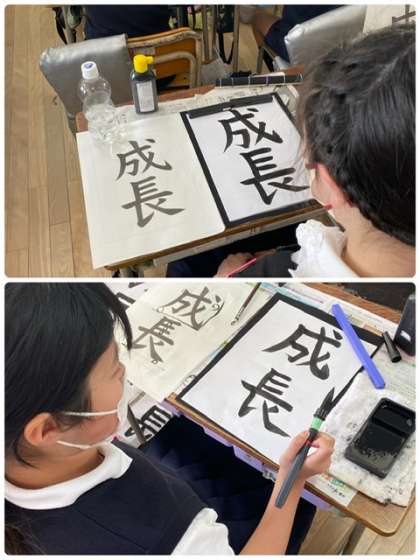 成長
成長
成長
成長